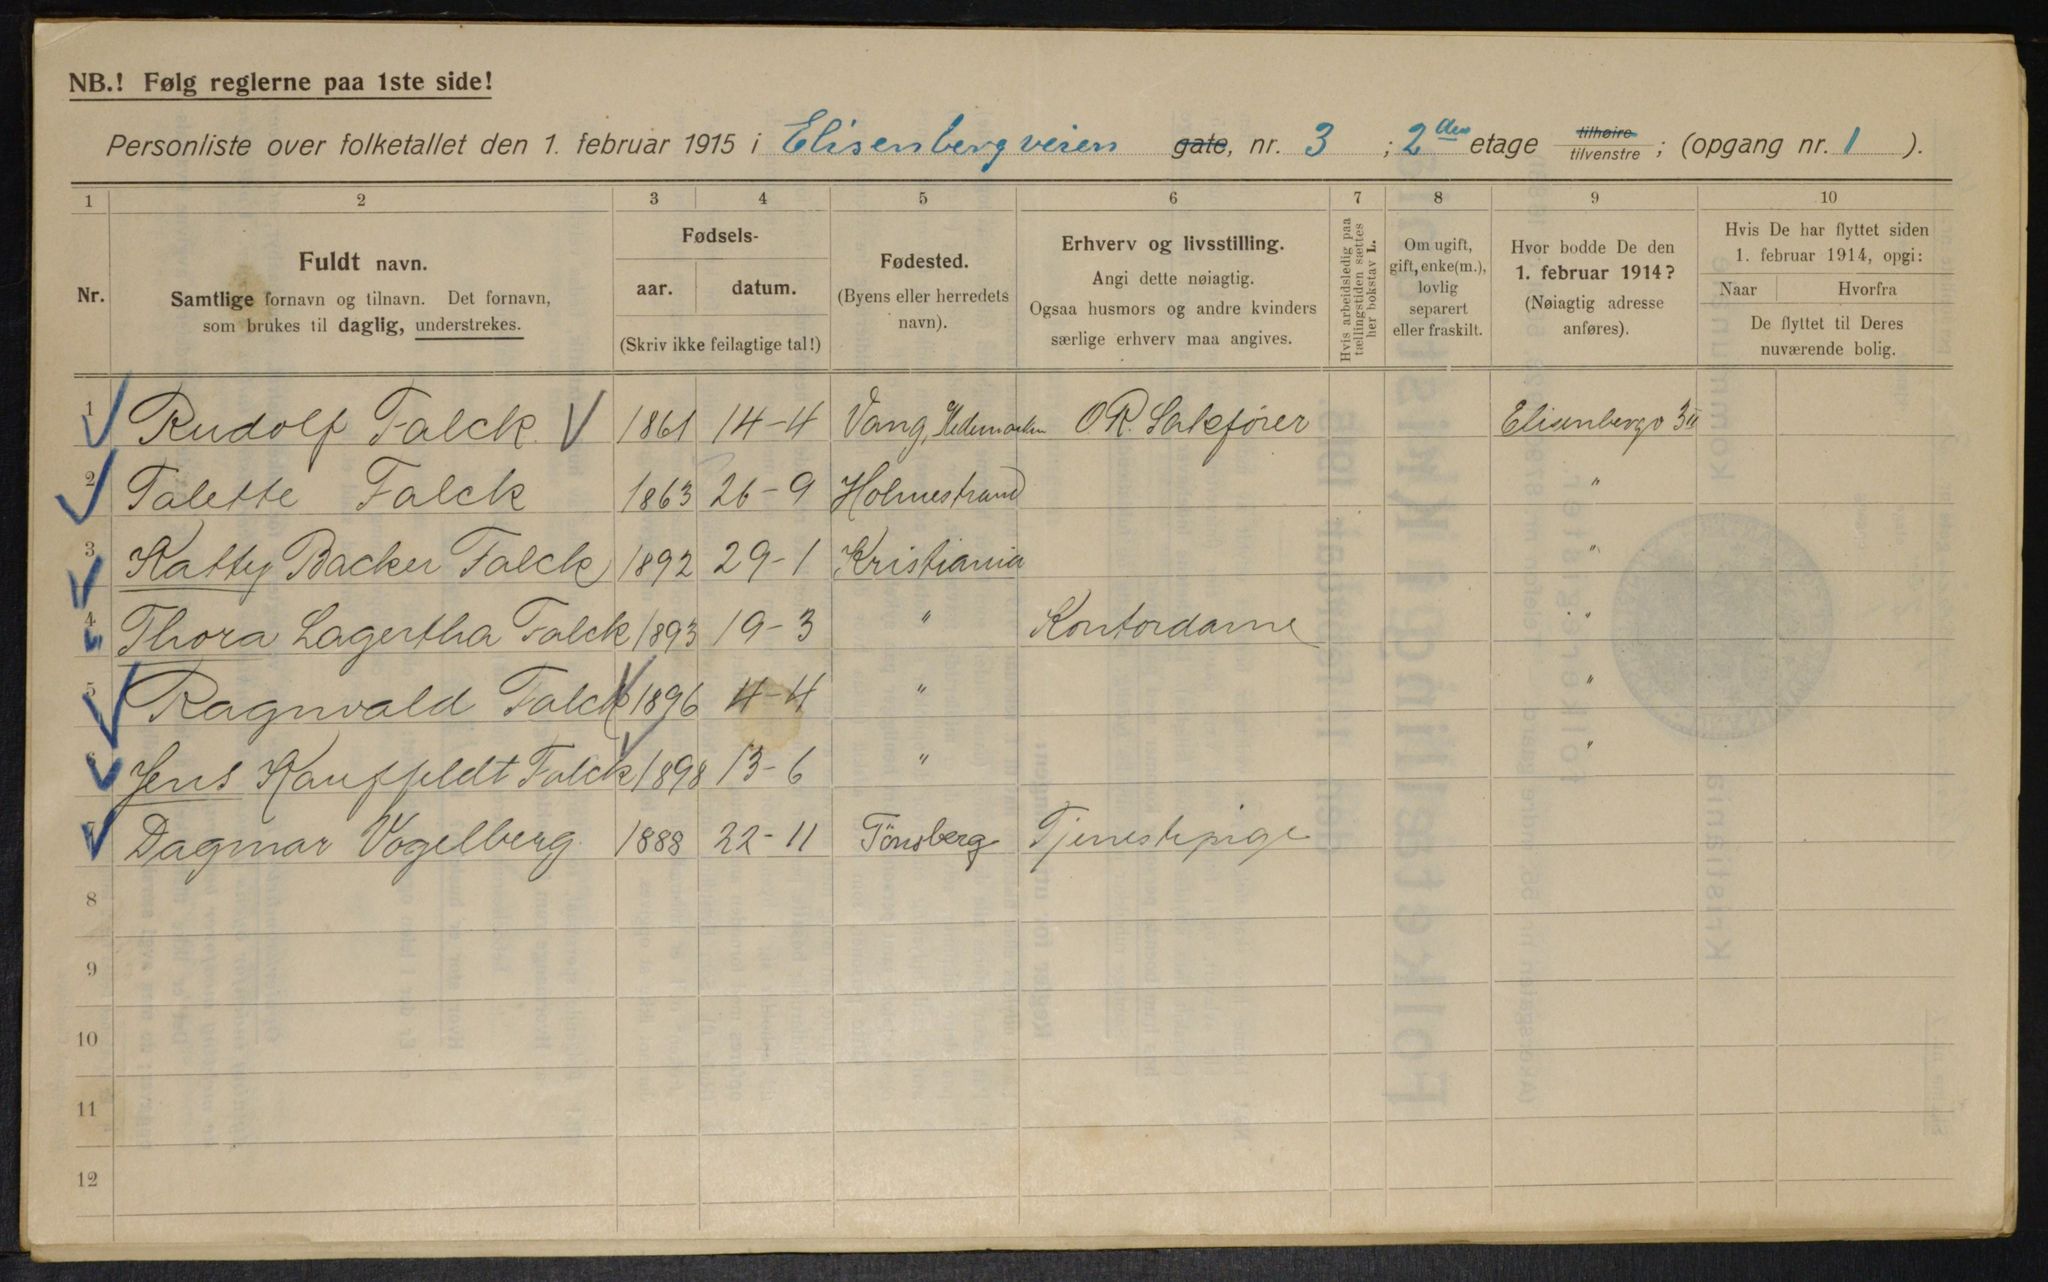 NB.! Følg reglerne paa 1ste side!
Personliste over folketallet den 1. februar 1915 i Elisenbergveien gate, nr. 3 ; 2den etage tilhøire/tilvenstre ; (opgang nr. 1 ).
1 2 3 4 5 6 7 8 9 10
Nr.
Fuldt navn.
Samtlige fornavn og tilnavn. Det fornavn,
som brukes til daglig, understrekes.
Fødsels-
aar. datum.
(Skriv ikke feilagtige tal!)
Fødested.
(Byens eller herredets
navn).
Erhverv og livsstilling.
Angi dette nøiagtig.
Ogsaa husmors og andre kvinders
særlige erhverv maa angives.
Hvis arbeidsledig paa
tællingstiden sættes
her bokstav L.
Om ugift,
gift, enke(m.),
lovlig
separert
eller fraskilt.
Hvor bodde De den
1. februar 1914?
(Nøiagtig adresse
anføres).
Hvis De har flyttet siden
1. februar 1914, opgi:
Naar Hvorfra
De flyttet til Deres
nuværende bolig.
1 Rudolf Falck 1861 14-4 Vang, Hedemarken O.R. Sakfører Elisenbergv 3 II
2 Talette Falck 1863 26-9 Holmestrand "
3 Katty Backer Falck 1892 29-1 Kristiania "
4 Thora Lagertha Falck 1893 19-3 " Kontordame "
5 Ragnvald Falck 1896 4-4 " "
6 Jens Kauffeldt Falck 1898 13-6 " "
7 Dagmar Vogelberg 1888 22-11 Tönsberg Tjenestepige
8
9
10
11
12